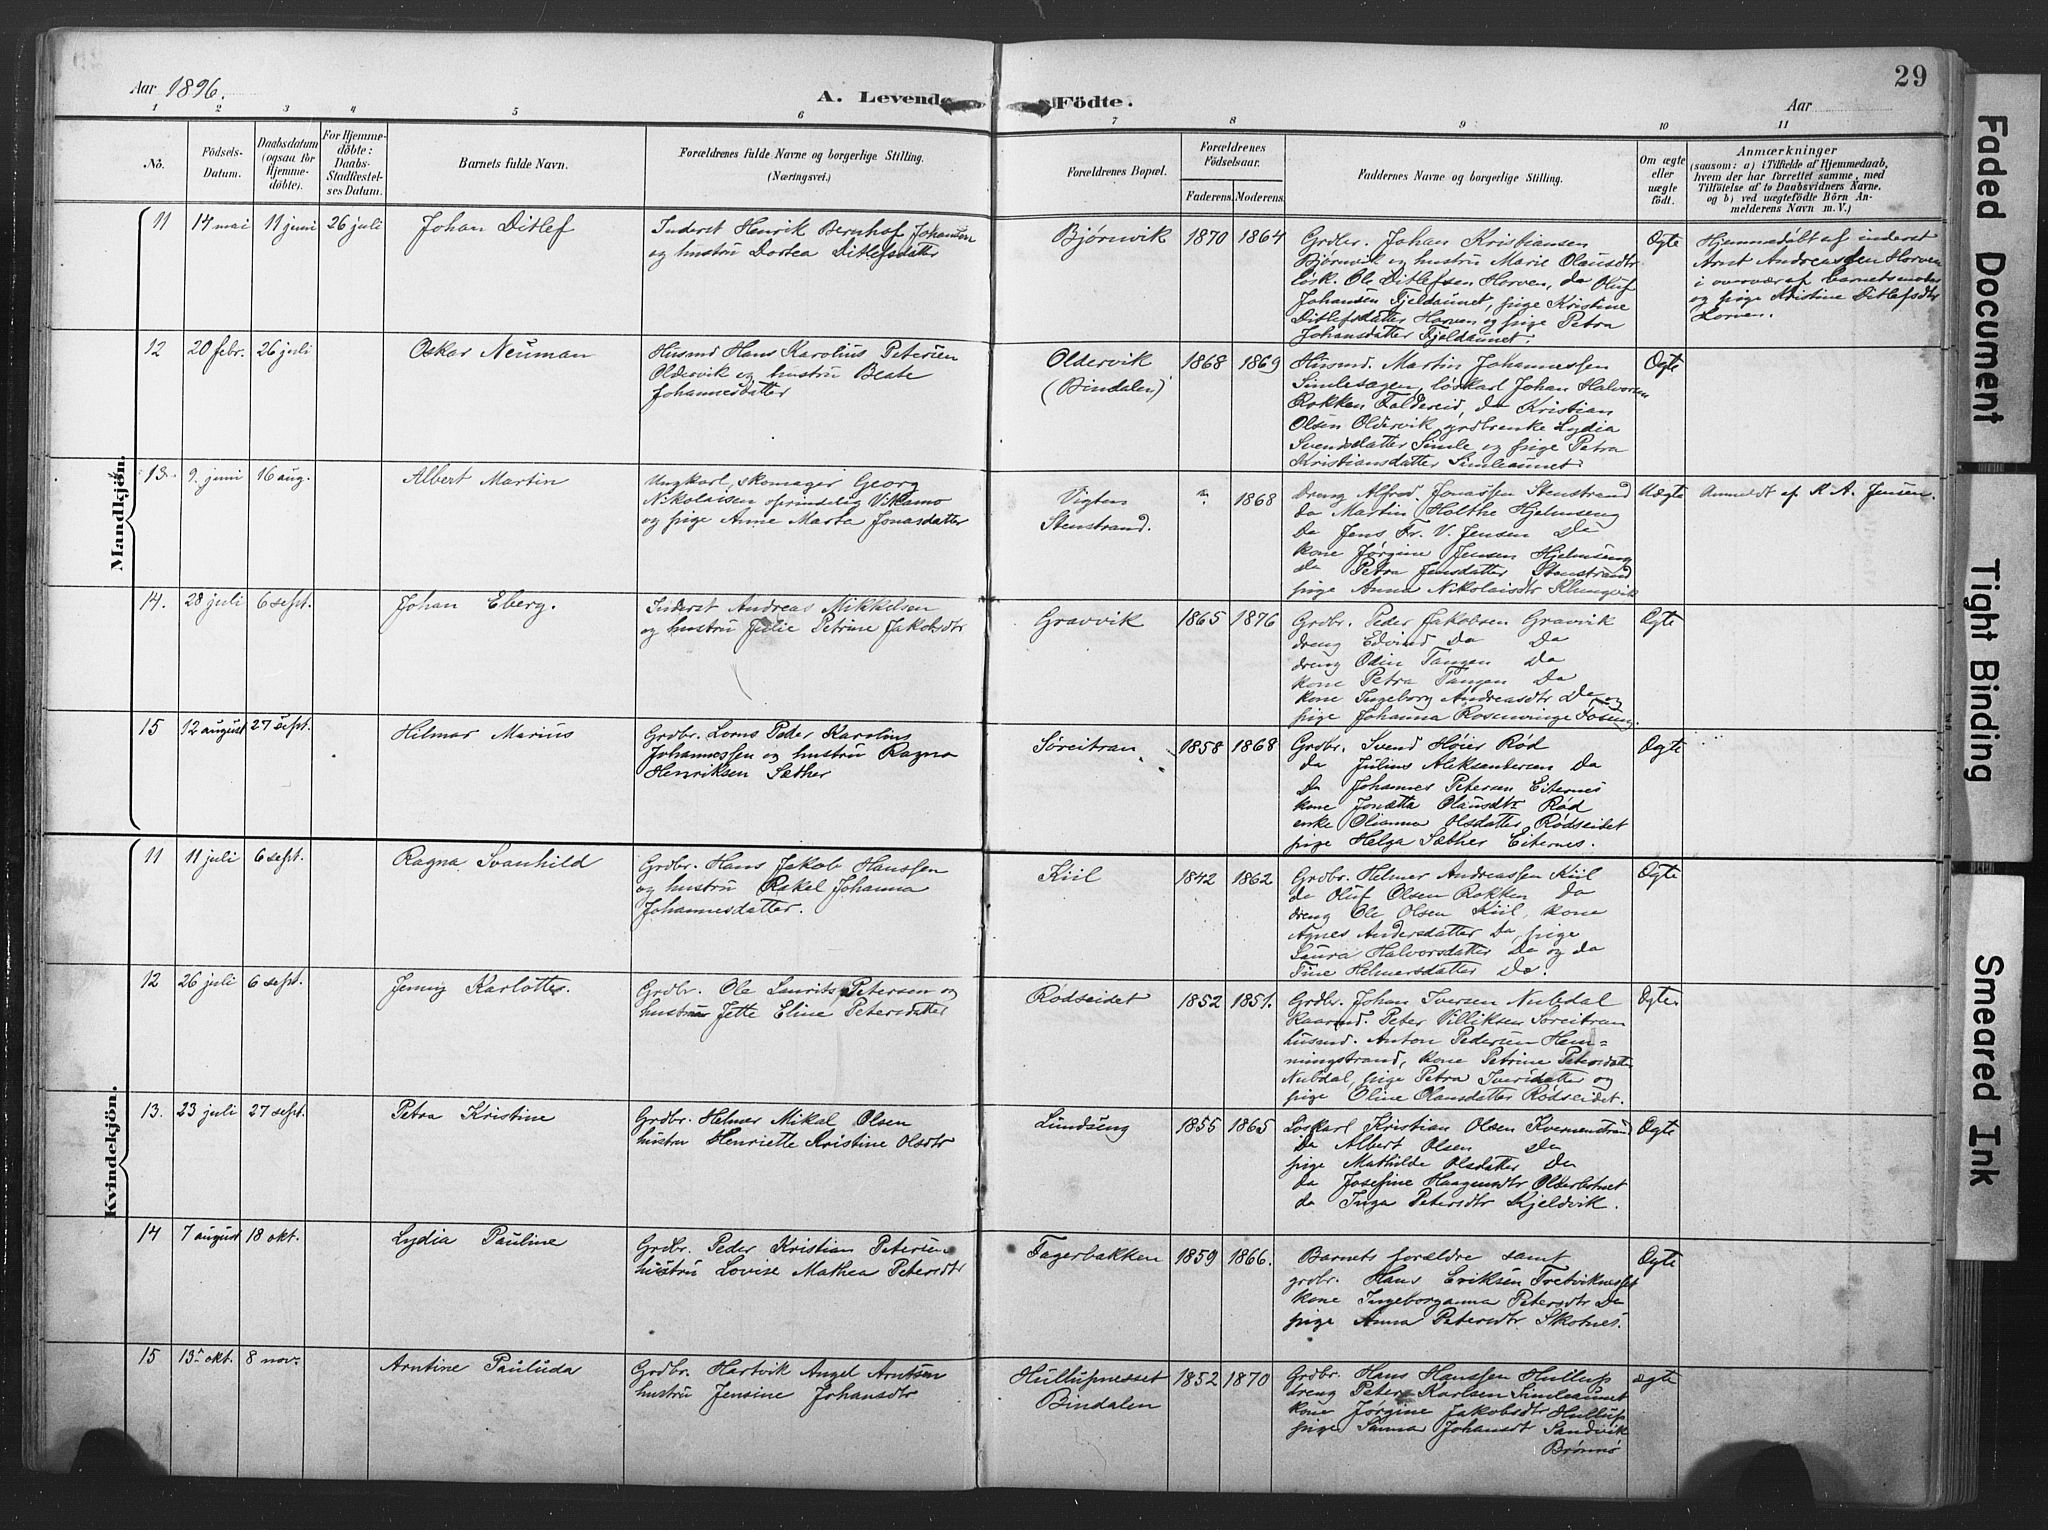 29
Aar 1896.
A. Levende Födte.
Aar
1 2 3 4 5 6 7 8 9 10 11
No.
Födsels-
Datum.
Daabsdatum
(ogsaa for
Hjemme-
döbte).
For Hjemme-
döbte:
Daabs-
Stadfæstel-
ses Datum.
Barnets fulde Navn.
Forældrenes fulde Navne og borgerlige Stilling.
(Næringsvei.)
Forældrenes Bopæl.
Forældrenes
Födselsaar.
Faderens. Moderens.
Faddernes Navne og borgerlige Stilling.
Om ægte
eller
uægte
födt.
Anmærkninger
(saasom: a) i Tilfælde af Hjemmedaab,
hvem der har forrettet samme, med
Tilföielse af to Daabsvidners Navne.
og b) ved uægtefödte Börn An-
melderens Navn m. V.)
Mandkjön.
11 14 mai 11 juni 26 juli
Johan Ditlef
Inderst Henrik Bernhof Johansen
og hustru Dortea Ditlefsdatter
Bjørnvik 1870 1864
Grdbr. Johan Kristiansen
Bjørnvik og hustru Marie Olausdtr
løsk. Ole Ditlefsen Horven, da Oluf
Johansen Fjeldaunet, pige Kristine
Ditlefsdatter Horven og pige Petra
Johansdatter Fjeldaunet.
Ægte
Hjemmedøbt af inderst
Arnt Andreassen Horven
i overvær af barnets moder
og pige Kristine Ditlefsdtr
Horven.
12 20 febr. 26 juli
Oskar Neuman
Husmd Hans Karolius Petersen
Oldervik og hustru Beate
Johannesdatter
Oldervik
(Bindalen)
1868 1869
Husmd. Martin Johannessen
Simlesagen, løskarl Johan Halvorsen
Rokken Foldereid, da Kristian
Olsen Oldervik grdbrenke Lydia
Svendsdatter Simle og pige Petra
Kristiansdatter Simleaunet
Ægte
13. 9. juni 16 aug.
Albert Martin
Ungkarl, skomager Georg
Nikolaisen oprindelig Viknamo
og pige Anne Marta Jonasdatter
Vigten
Stenstrand.
" 1868
Dreng Alfred Jonassen Stenstrand
da Martin Holthe Hjelmseng
Da Jens Fr. V. Jensen Da
kone Jørgine Jensen Hjelmseng
da Petra Jensdatter Stenstrand
pige Anna Nikolaisdtr Klungvik
Uægte
Anmeldt af K A. Jensen.
14. 28 juli 6 sept.
Johan Eberg.
Inderst Andreas Mikkelsen
og hustru Julie Petrine Jakobsdtr
Gravvik 1865 1876
Grdbr. Peder Jakobsen Gravvik
dreng Edvind Da Da
dreng Odin Tangen Da
kone Petra Tangen Da
kone Ingeborg Andreasdtr Da og
pige Johanna Rosenvinge Foseng.
Ægte
15 12 august 27 sept.
Hilmar Marius
Grdbr. Lorns Peder Karolius
Johannessen og hustru Ragna
Henriksen Sæther
Søreitran 1858 1868
Grdbr. Svend Høier Rød
da Julius Aleksandersen Da
Da Johannes Petersen Eiternes
kone Jonetta Olausdtr Rød
enke Olianna Olsdatter Rødseidet
pige Helga Sæther Eiternes.
Ægte
Kvindekjön.
11 11 juli 6 sept.
Ragna Svanhild
Grdbr. Hans Jakob Hanssen
og hustru Rakel Johanna
Johannesdatter.
Kiil 1842 1862
Grdbr. Helmer Andreassen Kiil
da Oluf Olsen Rokken Da
dreng Ole Olsen Kiil, kone
Agnes Andersdatter Da, pige
Laura Halvorsdatter Da og da
Tine Helmersdatter Da.
Ægte
12 26 juli 6 sept.
Jenny Karlotte.
Grdbr. Ole Laurits Petersen og
hustru Jette Eline Petersdatter
Rødseidet 1852 1851.
Grdbr. Johan Iversen Nubdal
kaarmd. Peter Villiksen Søreitran
husmd. Anton Pedersen Hem-
mingstrand, kone Petrine Petersdatter
Nubdal, pige Petra Iversdatter og
pige Oline Olausdatter Rødseidet.
Ægte
13. 23 juli 27 sept.
Petra Kristine
Grdbr. Helmer Mikal Olsen
hustru Henriette Kristine Olsdtr
Lundung 1855 1865
Løskarl Kristian Olsen Kvernenstrand
Da Albert Olsen Da
pige Mathilde Olsdatter Da
da Josefine Haagensdtr Olderbotnet
da Inga Petersdtr Kjeldvik.
Ægte
14 7 august 18 okt.
Lydia Pauline
Grdbr. Peder Kristian Petersen
hustru Lovise Mathea Petersdtr
Fagerbakken 1859 1866.
Barnets forældre samt
grdbr. Hans Eriksen Tretviknesset
kone Ingeborganna Petersdtr Da
pige Anna Petersdtr Skotnes.
Ægte
15 13. okt. 8 nov.
Arntine Pauluda
Grdbr. Hartvik Angel Arntsen
hustru Jensine Johansdtr
Hullupnesset
Bindalen
1852 1870
Grdbr. Hans Hanssen Hullup
dreng Peter Karlsen Simleaunet
kone Jørgine Jakobsdtr Hullup
pige Sanna Johansdt Sandvik
Brønnø
ægte
Faded Document
Tight Binding
Smeared Ink